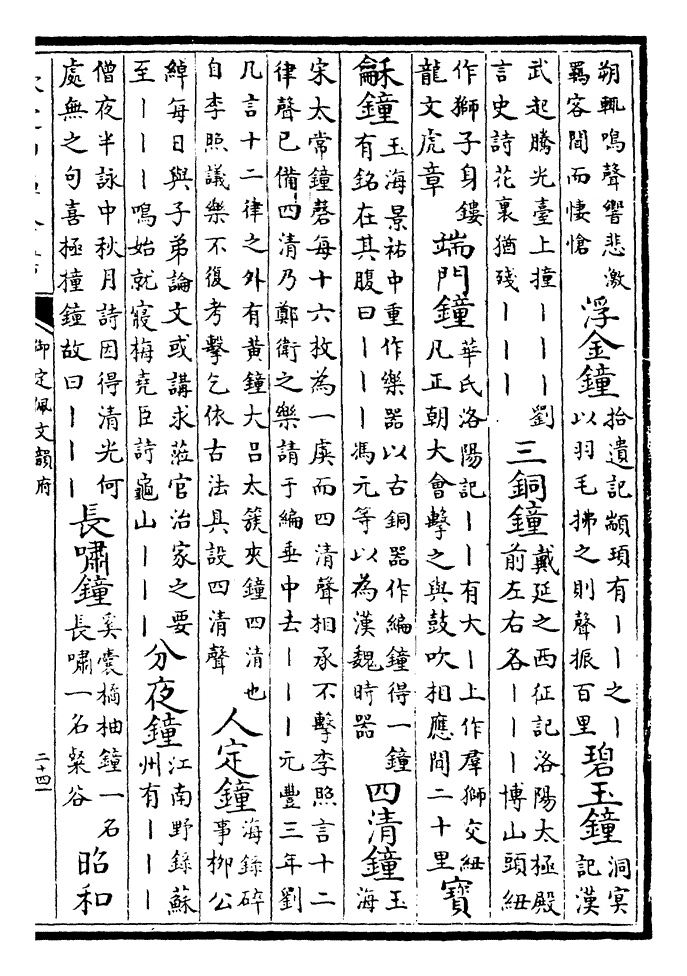 朔輒鳴聲響悲激
羇客聞而悽愴
浮金鐘
拾遺記顓頊有丨丨之丨
以羽毛拂之則聲振百里
碧玉鐘
洞冥
記漢
武起騰光臺上撞丨丨丨劉
言史詩花裏猶殘丨丨丨
三銅鐘
戴延之西征記洛陽太極殿
前左右各丨丨丨博山頭紐
作獅子身鏤
龍文虎章
端門鐘
華氏洛陽記丨丨有大丨上作羣獅交紐
凡正朝大會擊之與鼓吹相應聞二十里
寶
龢鐘
玉海景祐中重作樂器以古銅器作編鐘得一鐘
有銘在其腹曰丨丨丨馮元等以為漢魏時器
四清鐘
玉
海
宋太常鐘磬每十六枚為一虡而四清聲相承不擊李照言十二
律聲已備四清乃鄭衛之樂請于編垂中去丨丨丨元豐三年劉
几言十二律之外有黃鐘大呂太簇夾鐘四清也
自李照議樂不復考擊乞依古法具設四清聲
人定鐘
海錄碎
事柳公
綽每日與子弟論文或講求蒞官治家之要
至丨丨丨鳴始就寢梅堯臣詩龜山丨丨丨
分夜鐘
江南野錄蘇
州有丨丨丨
僧夜半詠中秋月詩因得清光何
處無之句喜極撞鐘故曰丨丨丨
長嘯鐘
奚囊橘柚鐘一名
長嘯一名粲谷
昭和
御定佩文韻府
二十四